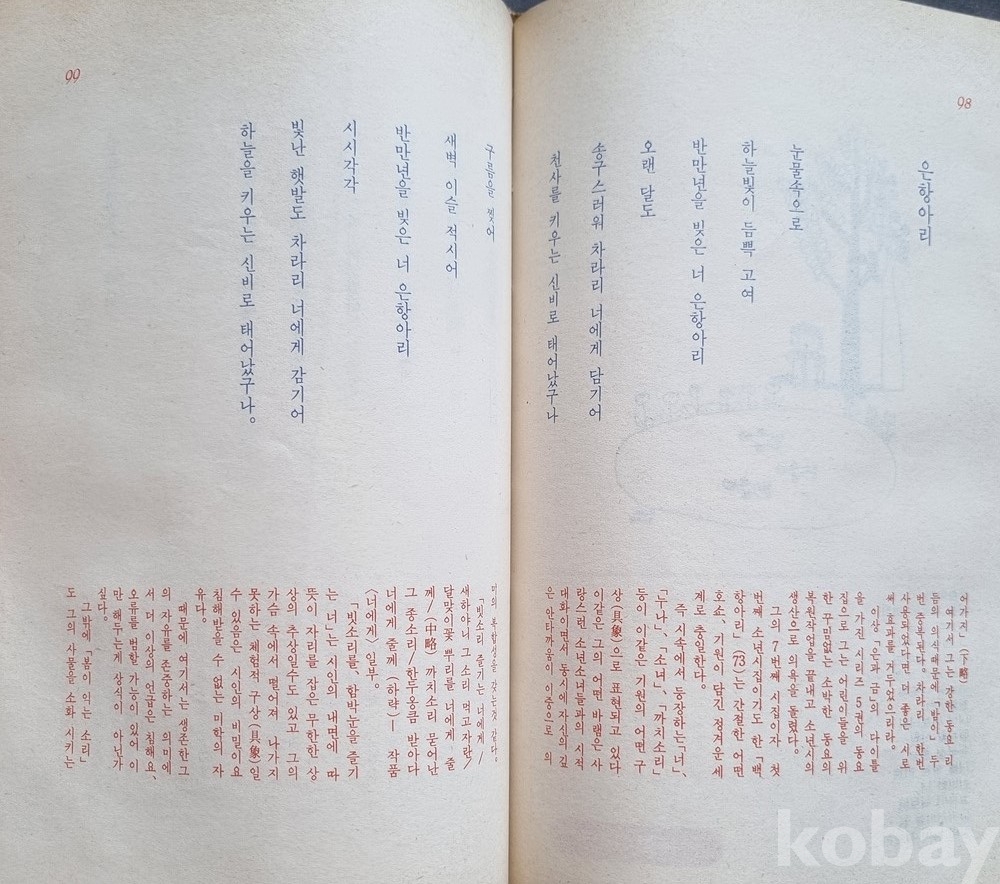 98
은항아리
눈물속으로
하늘빛이 듬뿍 고여
반만년을 빚은 너 은항아리
오랜 달도
송구스러워 차라리 너에게 담기어
천사를 키우는 신비로 태어났구나
어가지」(下略)
여기서 그는 강한 동요 리
듬의 의식때문에 「밤이」 두
번 중복된다. 차라리 한번
사용되었다면 더 좋은 시로
써 효과를 거두었으리라.
이상 「은과 금의 다이틀
을 가진 시리즈 5권의 동요
집으로 그는 어린이들을 위
한 꾸밈없는 소박한 동요의
복원작업을 끝내고 소년시의
생산으로 의욕을 돌렸다.
그의 7번째 시집이자 첫
번째 소년시집이기도 한 「백
항아리」(73)는 간절한 어떤
호쇼、기원이 담긴 정겨운 세
계로 충일한다。
즉 시속에서 등장하는 「너」、
「구나」、「소녀」、「까치소리」
등이 이같은 기원의 어떤 구
상(具象)으로 표현되고 있다
이같은 그의 어떤 바램은 사
랑스런 소년소녀들과의 시적
대화이면서 동시에 자신의 깊
은 안타까움이 이중으로 의
99
구름을 찢어
새벽 이슬 적시어
반만년을 빚은 너 은항아리
시시각각
빛난 햇발도 차라리 너에게 감기어
하늘을 키우는 신비로 태어났구나。
미의 복합성을 갖는것 같다。
「빗소리 줄기는 너에게/
새하야니 그 소리 먹고 자란/
달맞이꽃 뿌리를 너에게 줄
께/中略 까치소리 묻어난
그 종소리/한두웅큼 받아다
너에게 줄께(하략)― 작품
(너에게) 일부。
「빗소리를、함박눈을 즐기
는 너」는 시인의 내면에 따
뜻이 자리를 잡은 무한한 상
상의 추상일수도 있고 그의
가슴 속에서 떨어져 나가지
못하는 체험적 구상(具象)일
수 있음은 시인의 비밀이요
침해받을 수 없는 미학의 자
유다。
때문에 여기서는 생존한 그
의 자유를 존중하는 의미에
서 더 이상의 언급은 침해요、
오류를 범할 가능이 있어 이
만 해두는게 상식이 아닌가
싶다。
그밖에 「봄이 익는 소리」
도 그의 사물을 소화 시키는
kobay